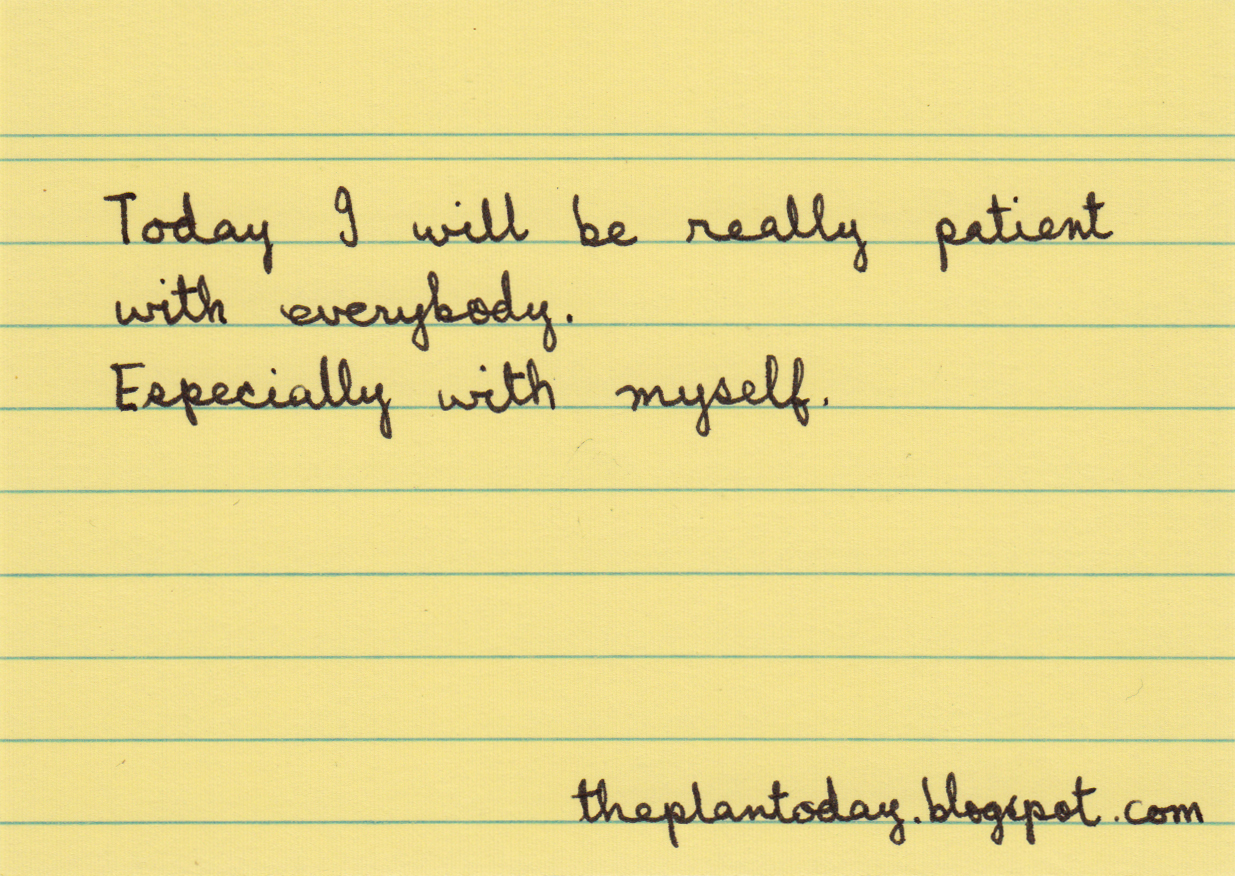 Today I will be really patient
with everybody.
Especially with myself.
theplantoday.blogspot.com